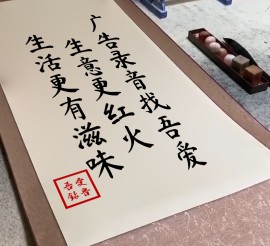 广告录音找吾爱
生意更红火
生活更有滋味
吾爱
录音